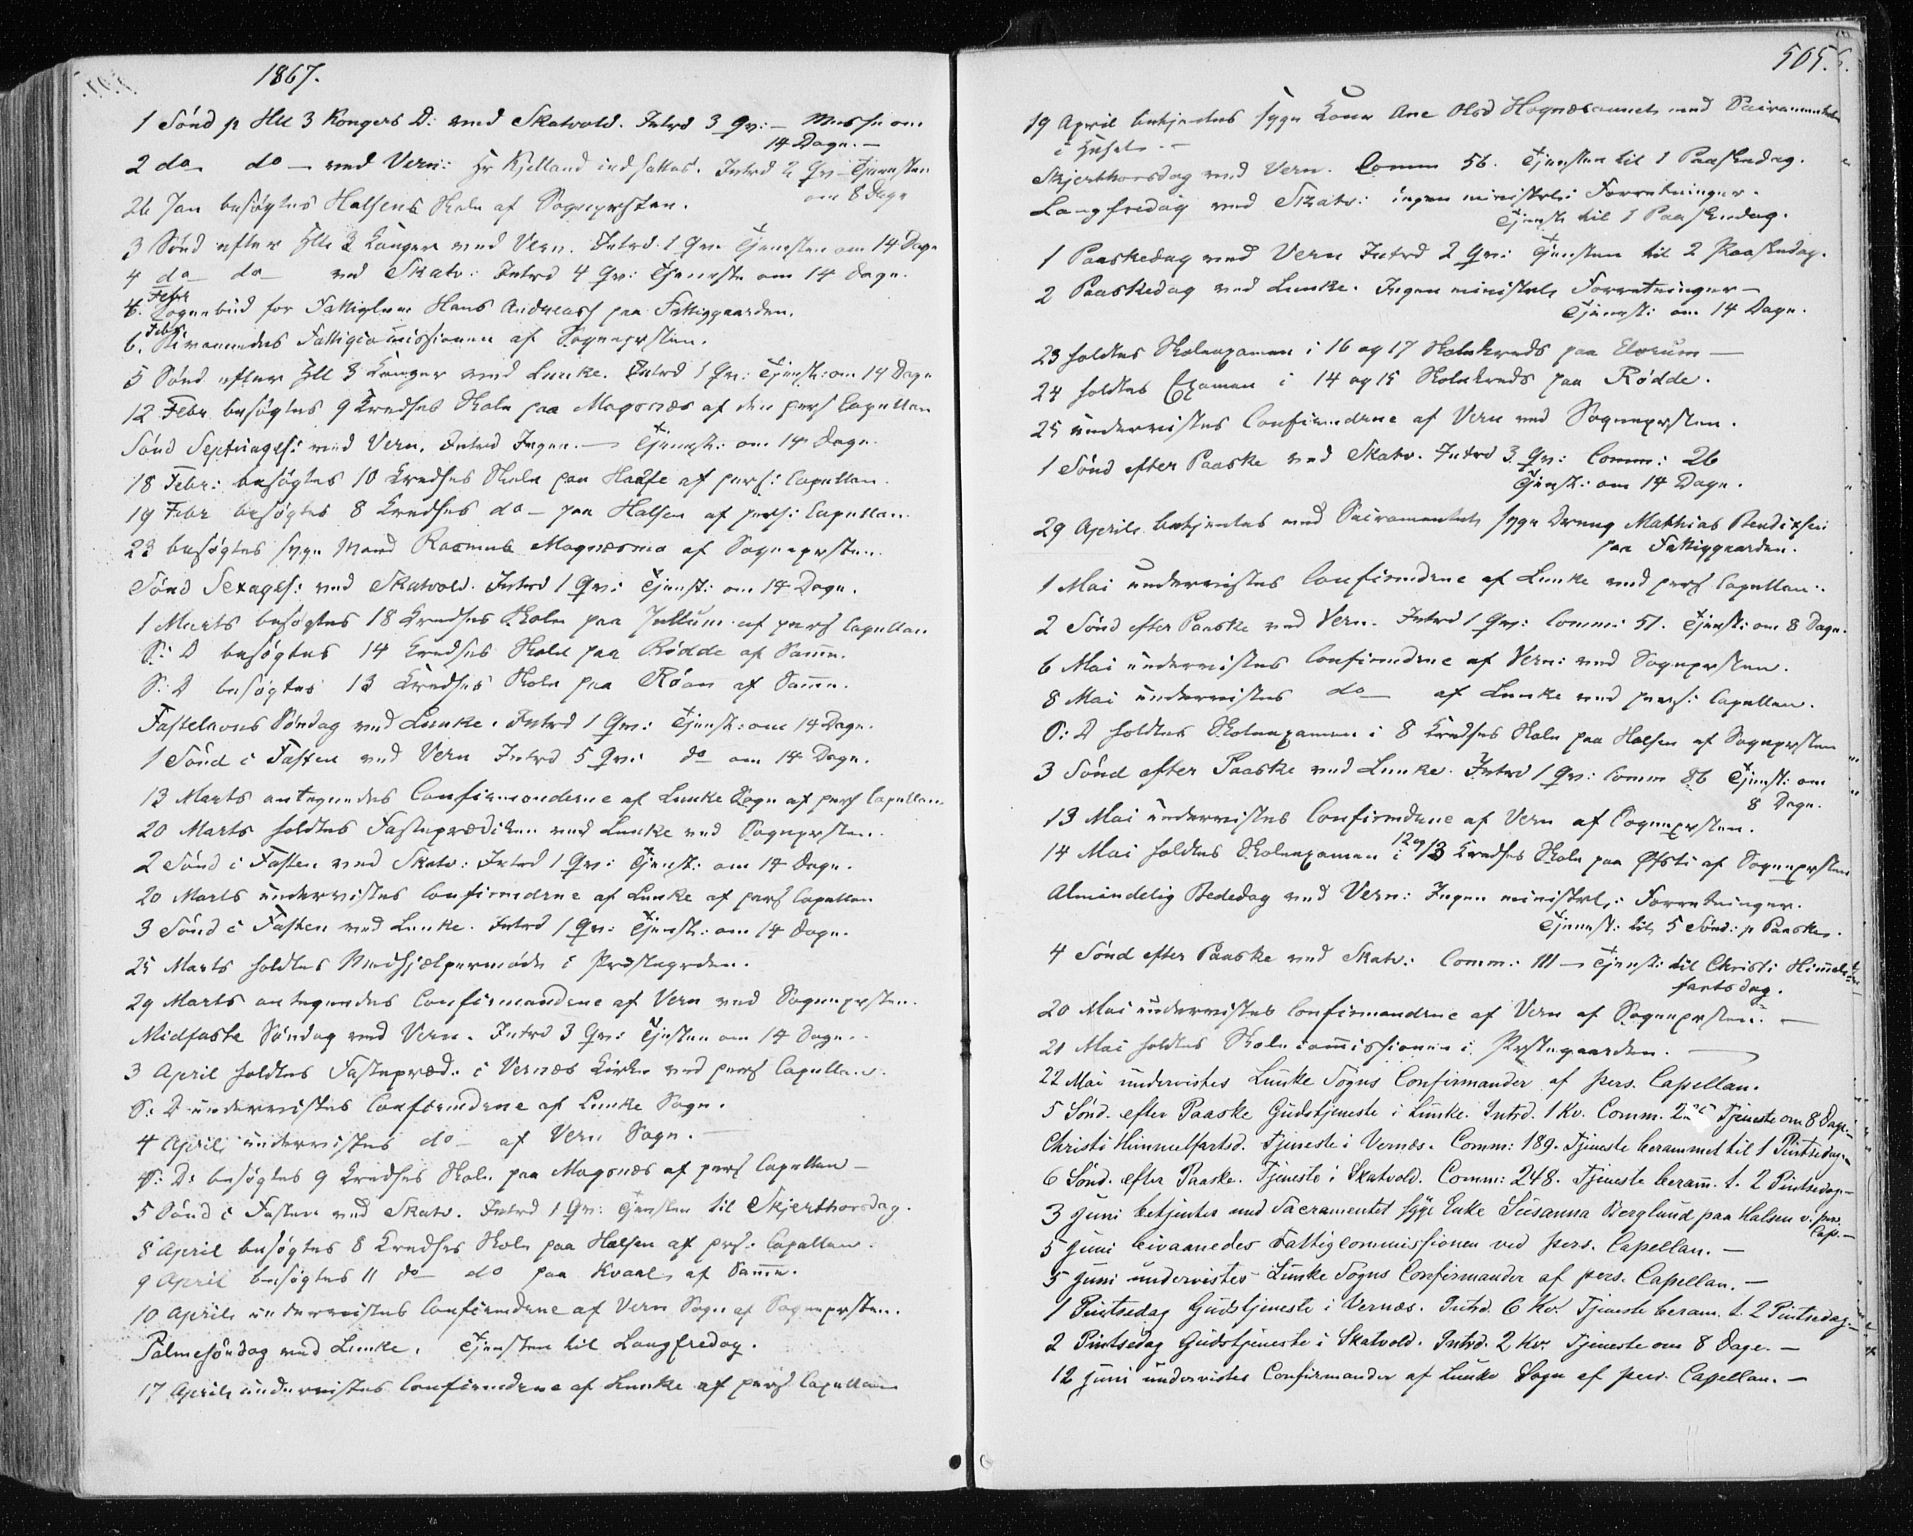 1867.
1 Sønd p Hll 3 Kongers D: ved Skatvold. Intrd 3 Qv: — Messe om
14 Dage. —
2 do do — ved Vern: Hr Kjelland indsattes. Intrd 2 Qv — Tjenesten
om 8 Dage
26 Jan besøgtes Halsens Skole af Sognepresten.
3 Sønd efter Hll 3 Konger ved Vern. Intrd 1 Qv. Tjenesten om 14 Dage
4 do do — ved Skatv: Intrd 4 Qv: Tjeneste om 14 Dage.
4. Febr Sognebud for Fattiglem Hans Andreas paa Fattiggaarden.
6. Febr. Bivaanedes Fattigcomissionen af Sognepresten.
5 Sønd efter Hll 3 Konger ved Lunke. Intrd 1 Qv: Tjenest: om 14 Dage
12 Febr. besøgtes 9 Kredses Skole paa Mogsnæs af den pers Capellan
Sønd Septuages: ved Vern. Intrd Ingen. — Tjenest: om 14 Dage.
18 Febr: besøgtes 10 Kredses Skole paa af pers: Capellan.
19 Febr besøgtes 8 Kredses do — paa Halsen af pers: Capellan.
23 besøgtes syge Mand Rasmus af Sognepresten.
Sønd Sexages: ved Skatvold. Intrd 1 Qv: Tjenest: om 14 Dage.
1 Marts besøgtes 18 Kredses Skole paa Jullum af pers Capellan
S: D besøgtes 14 Kredses Skole paa Rødde af Samme.
S: D besøgtes 13 Kredses Skole paa Røan af Samme.
Fastelavns Søndag ved Lunke. Intrd 1 Qv: Tjenest: om 14 Dage.
1 Sønd i Fasten ved Vern Intrd 5 Qv: do om 14 Dage.
13 Marts antegnedes Confirmanderne af Lunke Sogn af pers Capellan.
20 Marts holdtes Fasteprædiken ved Lunke ved Sognepresten.
2 Sønd i Fasten ved Skatv: Intrd 1 Qv: Tjenest: om 14 Dage.
20 Marts undervistes Confirmdrne af Lunke af pers Capellan
3 Sønd i Fasten ved Lunke. Intrd 1 Qv: Tjenest: om 14 Dage.
25 Marts holdtes Medhjælpermøde i Prestegrden.
29 Marts antegnedes Confirmandrne af Vern ved Sognepresten.
Midfaste Søndag ved Vern. Intrd 3 Qv: Tjensten om 14 Dage.
3 April holdtes Fastepræd: i Vernæs Kirke ved pers Capellan.
S: D undervistes Confirmdrne af Lunke Sogn.
4 April undervistes do — af Vern Sogn. —
S: D: besøgtes 9 Kredses Skole paa Mogsnæs af pers Capellan —
5 Sønd i Fasten ved Skatv. Intrd 1 Qv: Tjensten til Skjerthorsdag.
8 April besøgtes 8 Kredses Skole paa Halsen af prs: Capellan.
9 April besøgtes 11 do — do paa Kvaal af Samme.
10 April undervistes Confirmdrne af Vern Sogn af Sognepresten.
Palmesøndag ved Lunke. Tjensten til Langfredag.
17 April undervistes Confirmdrne af Lunke af pers Capellan
505.
19 April betjentes syge Kone Ane Olsd med Sacramentet
i Huset. —
Skjerthorsdag ved Vern. Comm 56. Tjensten til 1 Paaskedag.
Langfredag ved Skatv: ingen ministrl: Forretninger.
Tjenst til 1 Paaskedag.
1 Paaskedag ved Vern Intrd 2 Qv: Tjensten til 2 Paaskedag.
2 Paaskedag ved Lunke. Ingen ministrl: Forretninger —
Tjenest: om 14 Dage.
23 holdtes Skoleexamen i 16 og 17 Skolekreds paa —
24 holdtes Examen i 14 og 15 Skolekreds paa Rødde.
25 undervistes Confirmdrne af Vern ved Sognepresten.
1 Sønd efter Paaske ved Skatv. Intrd 3 Qv: Comm: 26
Tjenst: om 14 Dage.
29 April betjentes med Sacramentet syge Dreng Mathias Bendixsen
paa Fattiggaarden.
1 Mai undervistes Confirmdrne af Lunke ved pers Capellan.
2 Sønd efter Paaske ved Vern. Intrd 1 Qv: Comm: 51. Tjenst: om 8 Dage.
6 Mai undervistes Confirmdrne af Vern: ved Sognepresten.
8 Mai undervistes do — af Lunke ved pers: Capellan.
S: D holdtes Skoleexamen i 8 Kredses Skole paa Halsen af Sognepresten
3 Sønd efter Paaske ved Lunke. Intrd 1 Qv: Comm 86 Tjenst: om
8 Dage.
13 Mai undervistes Confirmdrne af Vern af Sognepresten.
14 Mai holdtes Skoleexamen i 12 og 13 Kredses Skole paa Øfsti af Sognepresten
Almindelig Bededag ved Vern: Ingen ministrl: Forretninger.
Tjenest: til 5 Sønd: p Paaske.
4 Sønd efter Paaske ved Skatv: Comm: 111 — Tjenst: til Christi Himmel-
fartsdag.
20 Mai undervistes Confirmandrne af Vern af Sognepresten. —
21 Mai holdtes Skolecommissionen i Prestegaarden. —
22 Mai undervistes Lunke Sogns Confirmander af pers. Capellan.
5 Sønd. efter Paaske Gudstjeneste i Lunke. Intrd. 1 Kv. Comm. Tjeneste om 8 Dage. —
Christi Himmelfartsd. Tjeneste i Vernæs. Comm: 189. Tjeneste berammet til 1 Pintsedag. —
6 Sønd. efter Paaske. Tjeneste i Skatvold. Comm: 248. Tjeneste beram̄. t. 2 Pintsedag —
3 Juni betjentes med Sacramentet syge Enke Susanna Berglund paa Halsen v. pers.
Cap. —
5 Juni bivaanedes Fattigcommissionen ved pers. Capellan. —
5 Juni undervistes Lunke Sogns Confirmander af pers. Capellan. —
1 Pintsedag Gudstjeneste i Vernæs. Intrd. 6 Kv. Tjeneste beram. t. 2 Pintsedag. —
2 Pintsedag Gudstjeneste i Skatvold. Intrd. 2 Kv. Tjeneste om 8 Dage. —
12 Juni undervistes Confirmander af Lunke Sogn af pers. Capellan. —